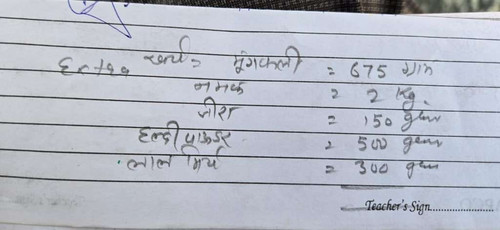 खर्च = मूंगफली = 675 ग्राम
नमक = 2 kg.
जीरा = 150 gm
हल्दी पाउडर = 500 gm
लाल मिर्च = 300 gm
Teacher's Sign.....................